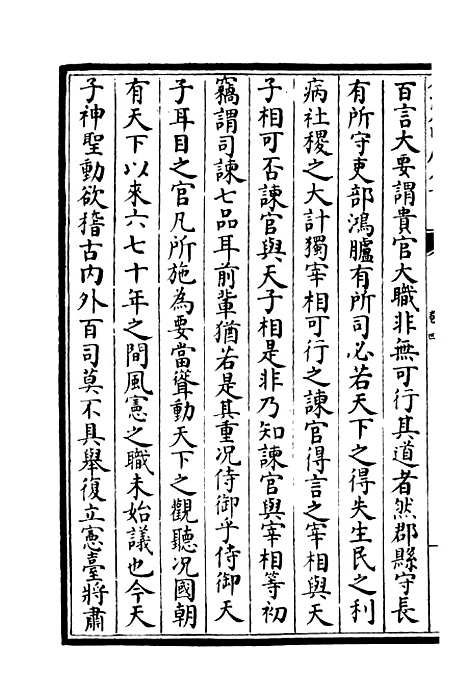 百言大要謂貴官大職非無可行其道者然郡縣守長
有所守吏部鴻臚有所司必若天下之得失生民之利
病社稷之大計獨宰相可行之諫官得言之宰相與天
子相可否諫官與天子相是非乃知諫官與宰相等初
竊謂司諫七品耳前輩猶若是其重况侍御乎侍御天
子耳目之官凡所施為要當聳動天下之觀聽况國朝
有天下以來六七十年之間風憲之職未始議也今天
子神聖動欲稽古内外百司莫不具舉復立憲臺將肅